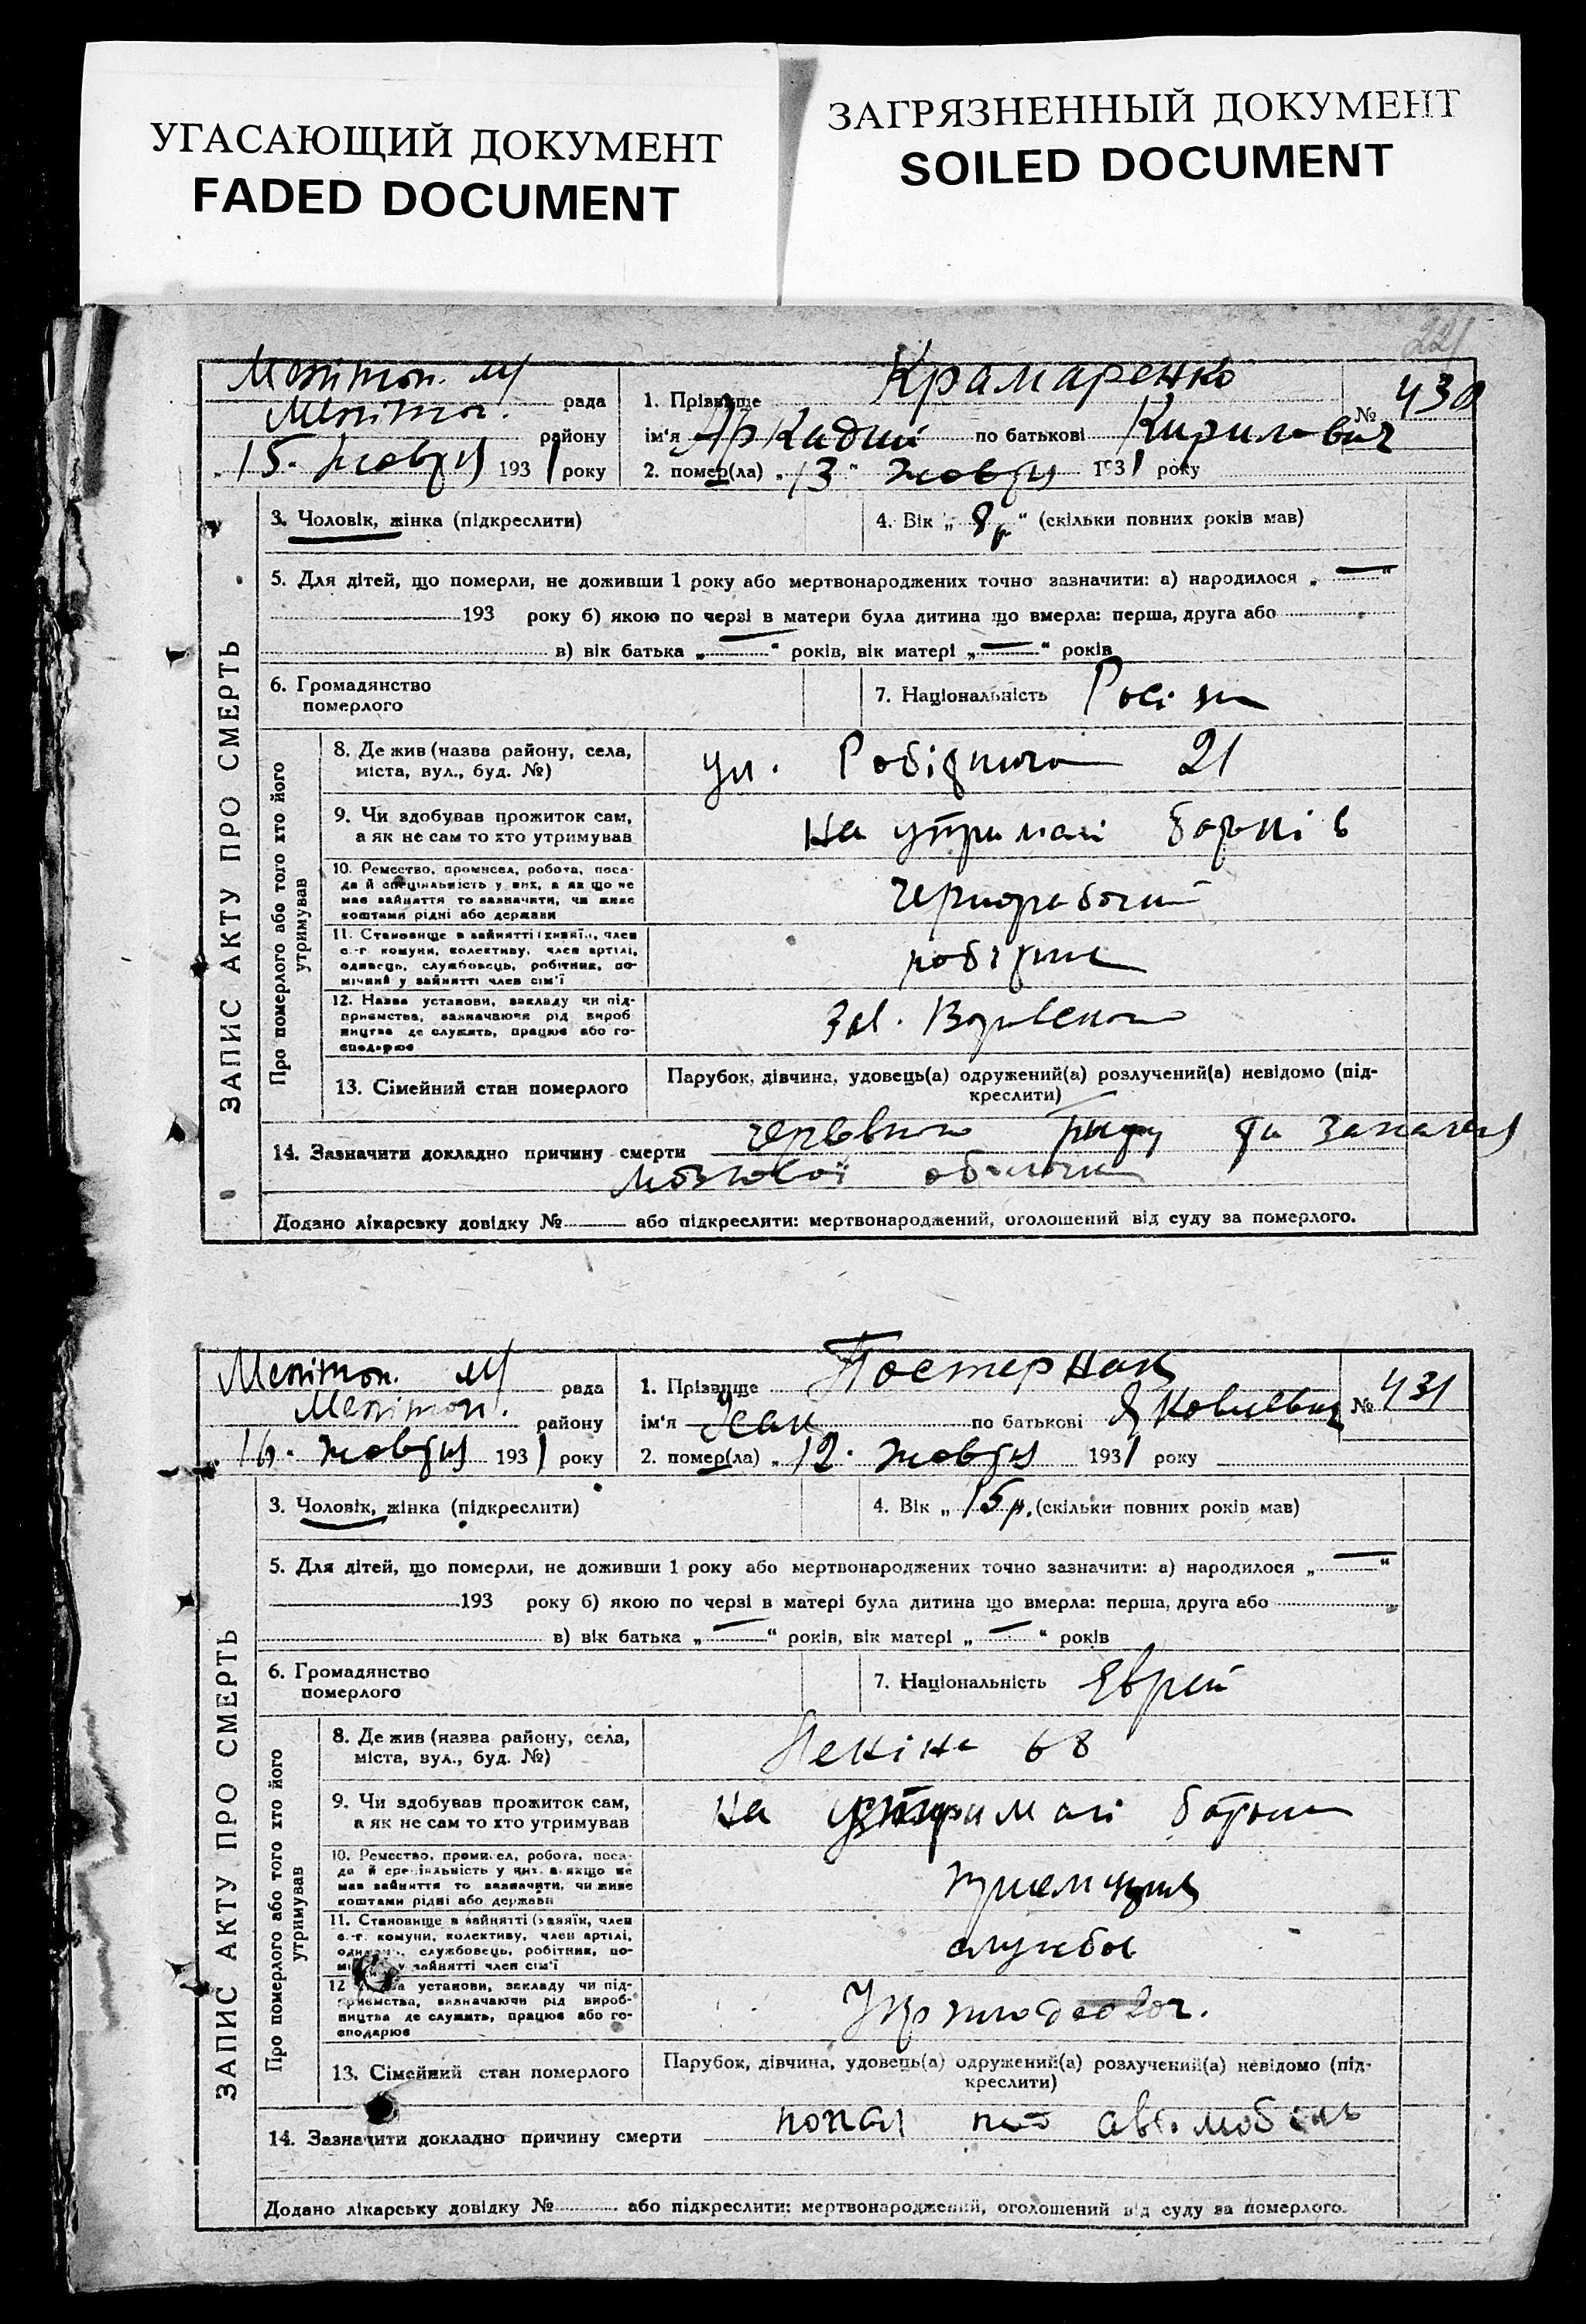 УГАСАЮЩИЙ ДОКУМЕНТ
FADED DOCUMENT
ЗАГРЯЗНЕННЫЙ ДОКУМЕНТ
SOILED DOCUMENT
221
ЗАПИС АКТУ ПРО СМЕРТЬ
Мелітоп. м/ рада
Меліто. району
„15. жовтня 1931 року
1. Прізвище Крамаренко
№ 430
ім'я Аркадий по батькові Кирилович
2. помер(ла) „13" жовтня 1931 року
3. Чоловік, жінка (підкреслити)
4. Вік „8р" (скільки повних років мав)
5. Для дітей, що померли, не доживши 1 року або мертвонароджених точно зазначити: а) народилося „—"
193 року б) якою по черзі в матери була дитина що вмерла: перша, друга або
в) вік батька „—" років, вік матері „—" років
6. Громадянство померлого
7. Національність Росіян
Про померлого або того хто його утримував
8. Де жив (назва району, села, міста, вул., буд. №)
ул. Робітнича 21
9. Чи здобував прожиток сам, а як не сам то хто утримував
на утримані батьків
10. Ремество, промисел, робота, посада й спеціяльність у них, а як що не має зайняття то зазначити, чи живе коштами рідні або держави
чернорабочий
11. Становище в зайнятті (хазяїн, член с.-г. комуни, колективу, член артілі, одинець, службовець, робітник, помічний у зайнятті член сім'ї
робітник
12. Назва установи, закладу чи підприємства, зазначаючи рід виробництва де служить, працює або господарює
Зав.
13. Сімейний стан померлого
Парубок, дівчина, удовець(а) одружений(а) розлучений(а) невідомо (підкреслити)
14. Зазначити докладно причину смерти
та запалення
мозкової оболочки
Додано лікарську довідку № або підкреслити: мертвонароджений, оголошений від суду за померлого.
ЗАПИС АКТУ ПРО СМЕРТЬ
Мелітоп. м/ рада
Мелітоп. району
16. жовтня 1931 року
1. Прізвище Постернак
№ 431
ім'я Исак по батькові Яковлевич
2. помер(ла) „12. жовтня 1931 року
3. Чоловік, жінка (підкреслити)
4. Вік „15р. (скільки повних років мав)
5. Для дітей, що померли, не доживши 1 року або мертвонароджених точно зазначити: а) народилося „—"
193 року б) якою по черзі в матері була дитина що вмерла: перша, друга або
в) вік батька „—" років, вік матері „—" років
6. Громадянство померлого
7. Національність Еврей
Про померлого або того хто його утримував
8. Де жив (назва району, села, міста, вул., буд. №)
Леніна 68
9. Чи здобував прожиток сам, а як не сам то хто утримував
на утримані батька
10. Ремество, промисел, робота, посада й спеціяльність у них, а якщо не має зайняття то зазначити, чи живе коштами рідні або держави
приемщик
11. Становище в зайнятті (хазяїн, член с.-г. комуни, колективу, член артілі, одинець, службовець, робітник, помічний у зайнятті член сім'ї
службов
12. Назва установи, закладу чи підприємства, зазначаючи рід виробництва де служить, працює або господарює
13. Сімейний стан померлого
Парубок, дівчина, удовець(а) одружений(а) розлучений(а) невідомо (підкреслити)
14. Зазначити докладно причину смерти
попал под автомобіль
Додано лікарську довідку № або підкреслити: мертвонароджений, оголошений від суду за померлого.